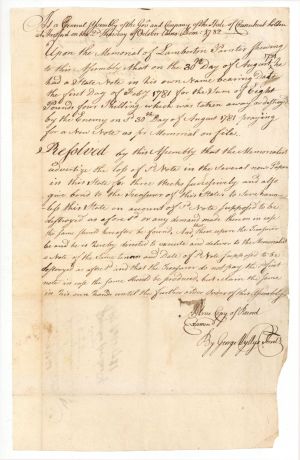 At a General Assembly of the Gov and Company of the State of Connecticut holden
at Hartford on the 2d Thursday of October Anno Dom: 1782
Upon the Memorial of Lamberton Painter shewing
to this Assembly that on the 30th Day of August he
had a State Note in his own Name bearing Date
the first Day of Feby 1781 for the Sum of Eight
Pounds four Shilling which was taken away or destroyd
by the Enemy on sd 30th Day of August 1781 praying
for a New Note as pr Memorial on file
Resolved by this Assembly that the Memorialist
advertize the loss of sd Note in the several new Papers
in this State for three Weeks successively and also
give bond to the Treasurer of this State to save harm-
less this State on account of sd Note supposed to be
destroyed as aforesd or any demand made thereon in case
the same should hereafter be found, And then upon the Treasurer
be and he is hereby directed to execute and deliver to the Memorialist
a Note of the same Tenor and Date of sd Note supposed to be
destroyed as aforesd and that the Treasurer do not pay the first
note in case the same should be produced, but retain the same
in his own hands until the further order of this Assembly
A true Copy of Record
Examd
By George Wyllys Secret